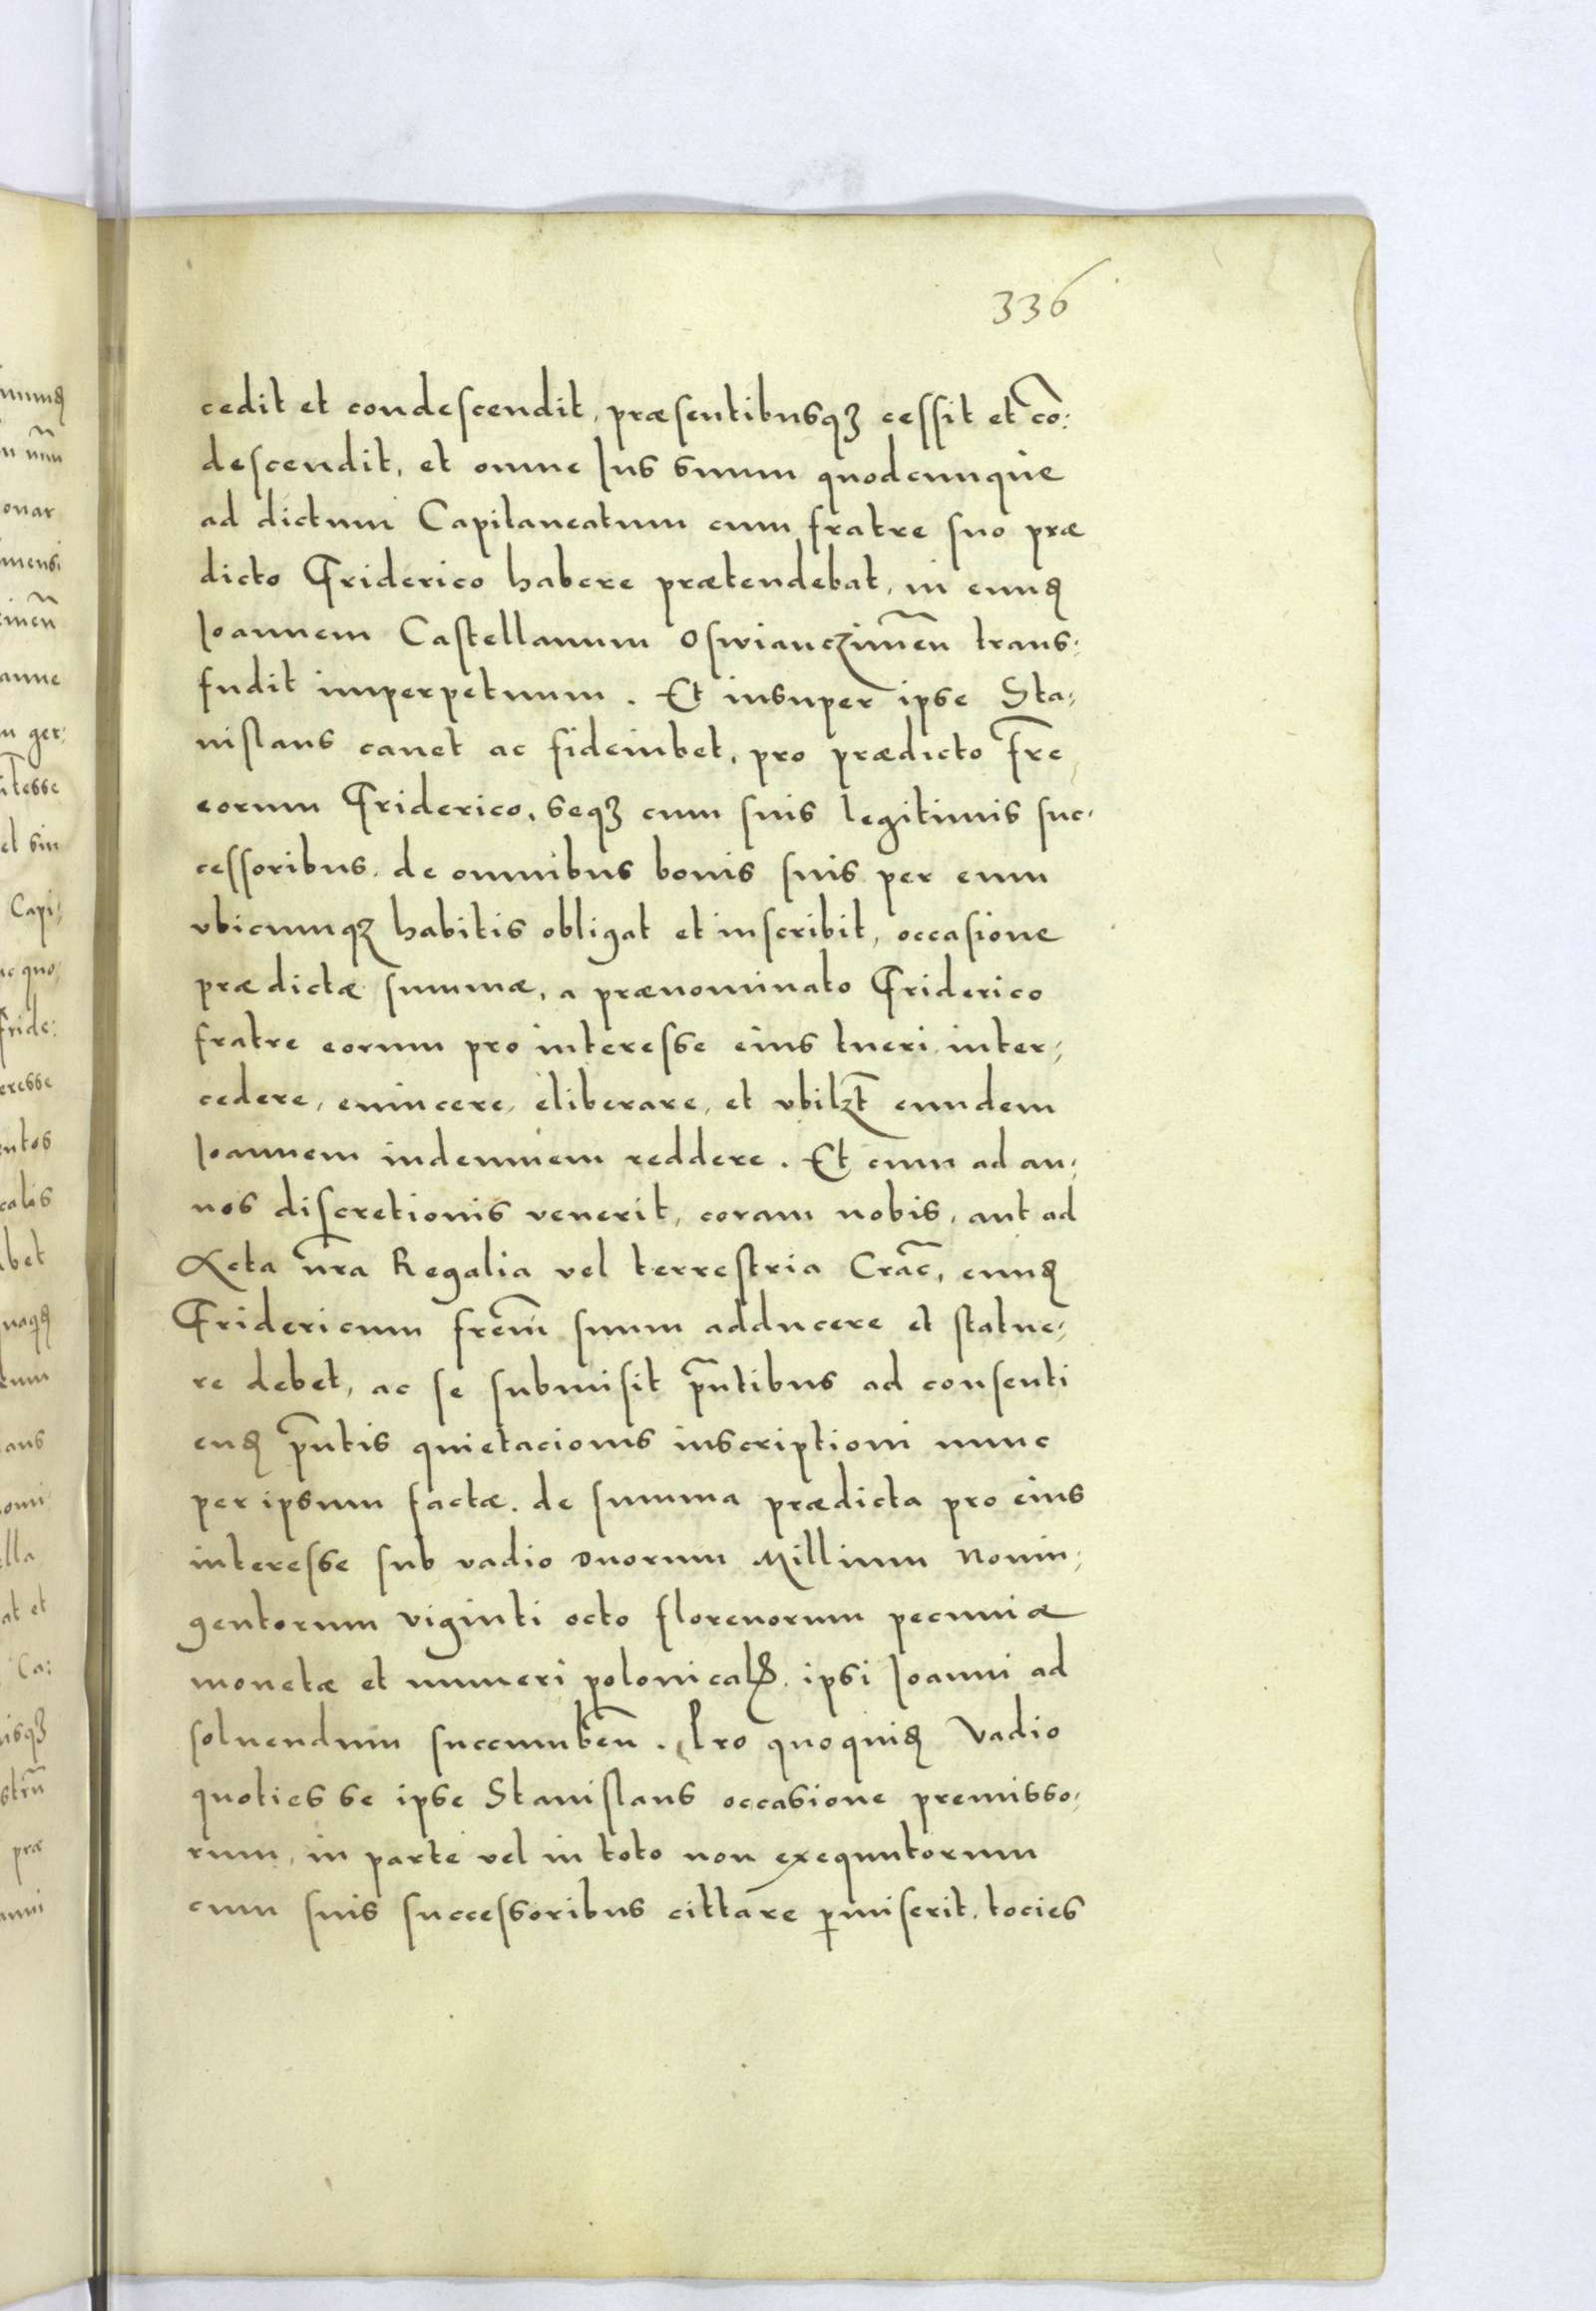 336
cedit et condescendit, præsentibusqꝫ cessit et cō:
descendit, et omne Ius suum quodcunque
ad dictum Capitaneatum cum fratre suo præ
dicto Friderico habere prætendebat, in eundē
Ioannem Castellanum Oswianczimēn trans⸗
fudit imperpetuum. Et insuper ipse Sta⸗
nislaus cauet ac fideiubet, pro prædicto fr̄e
eorum Friderico, seqꝫ cum suis legitimis suc⸗
cessoribus. de omnibus bonis suis per eum
vbicumqꝫ habitis obligat et inscribit, occasione
prædictæ summæ, a prænominato Friderico
fratre eorum pro interesse eius tueri inter⸗
cedere, euincere, eliberare, et vbilꝫt̄ eundem
Ioannem indemnem reddere. Et cum ad an⸗
nos discretionis venerit, coram nobis, aut ad
Acta nr̄a Regalia vel terrestria Crac̄, eundē
Fridericum frēm suum adducere et statue⸗
re debet, ac se submisit pn̄tibus ad consenti
endū pn̄tis quietacionis inscriptioni nunc
per ipsum factæ. de summa prædicta pro eius
interesse sub vadio Duorum Millium Nonin⸗
gentorum viginti octo florenorum pecuniæ
monetæ et numeri polonicalꝫ. ipsi Ioanni ad
soluendum succumbēn. Pro quoquidē Vadio
quoties se ipse Stanislaus occasione premisso⸗
rum, in parte vel in toto non exequutorum
cum suis successoribus cittare ꝑmiserit. tocies